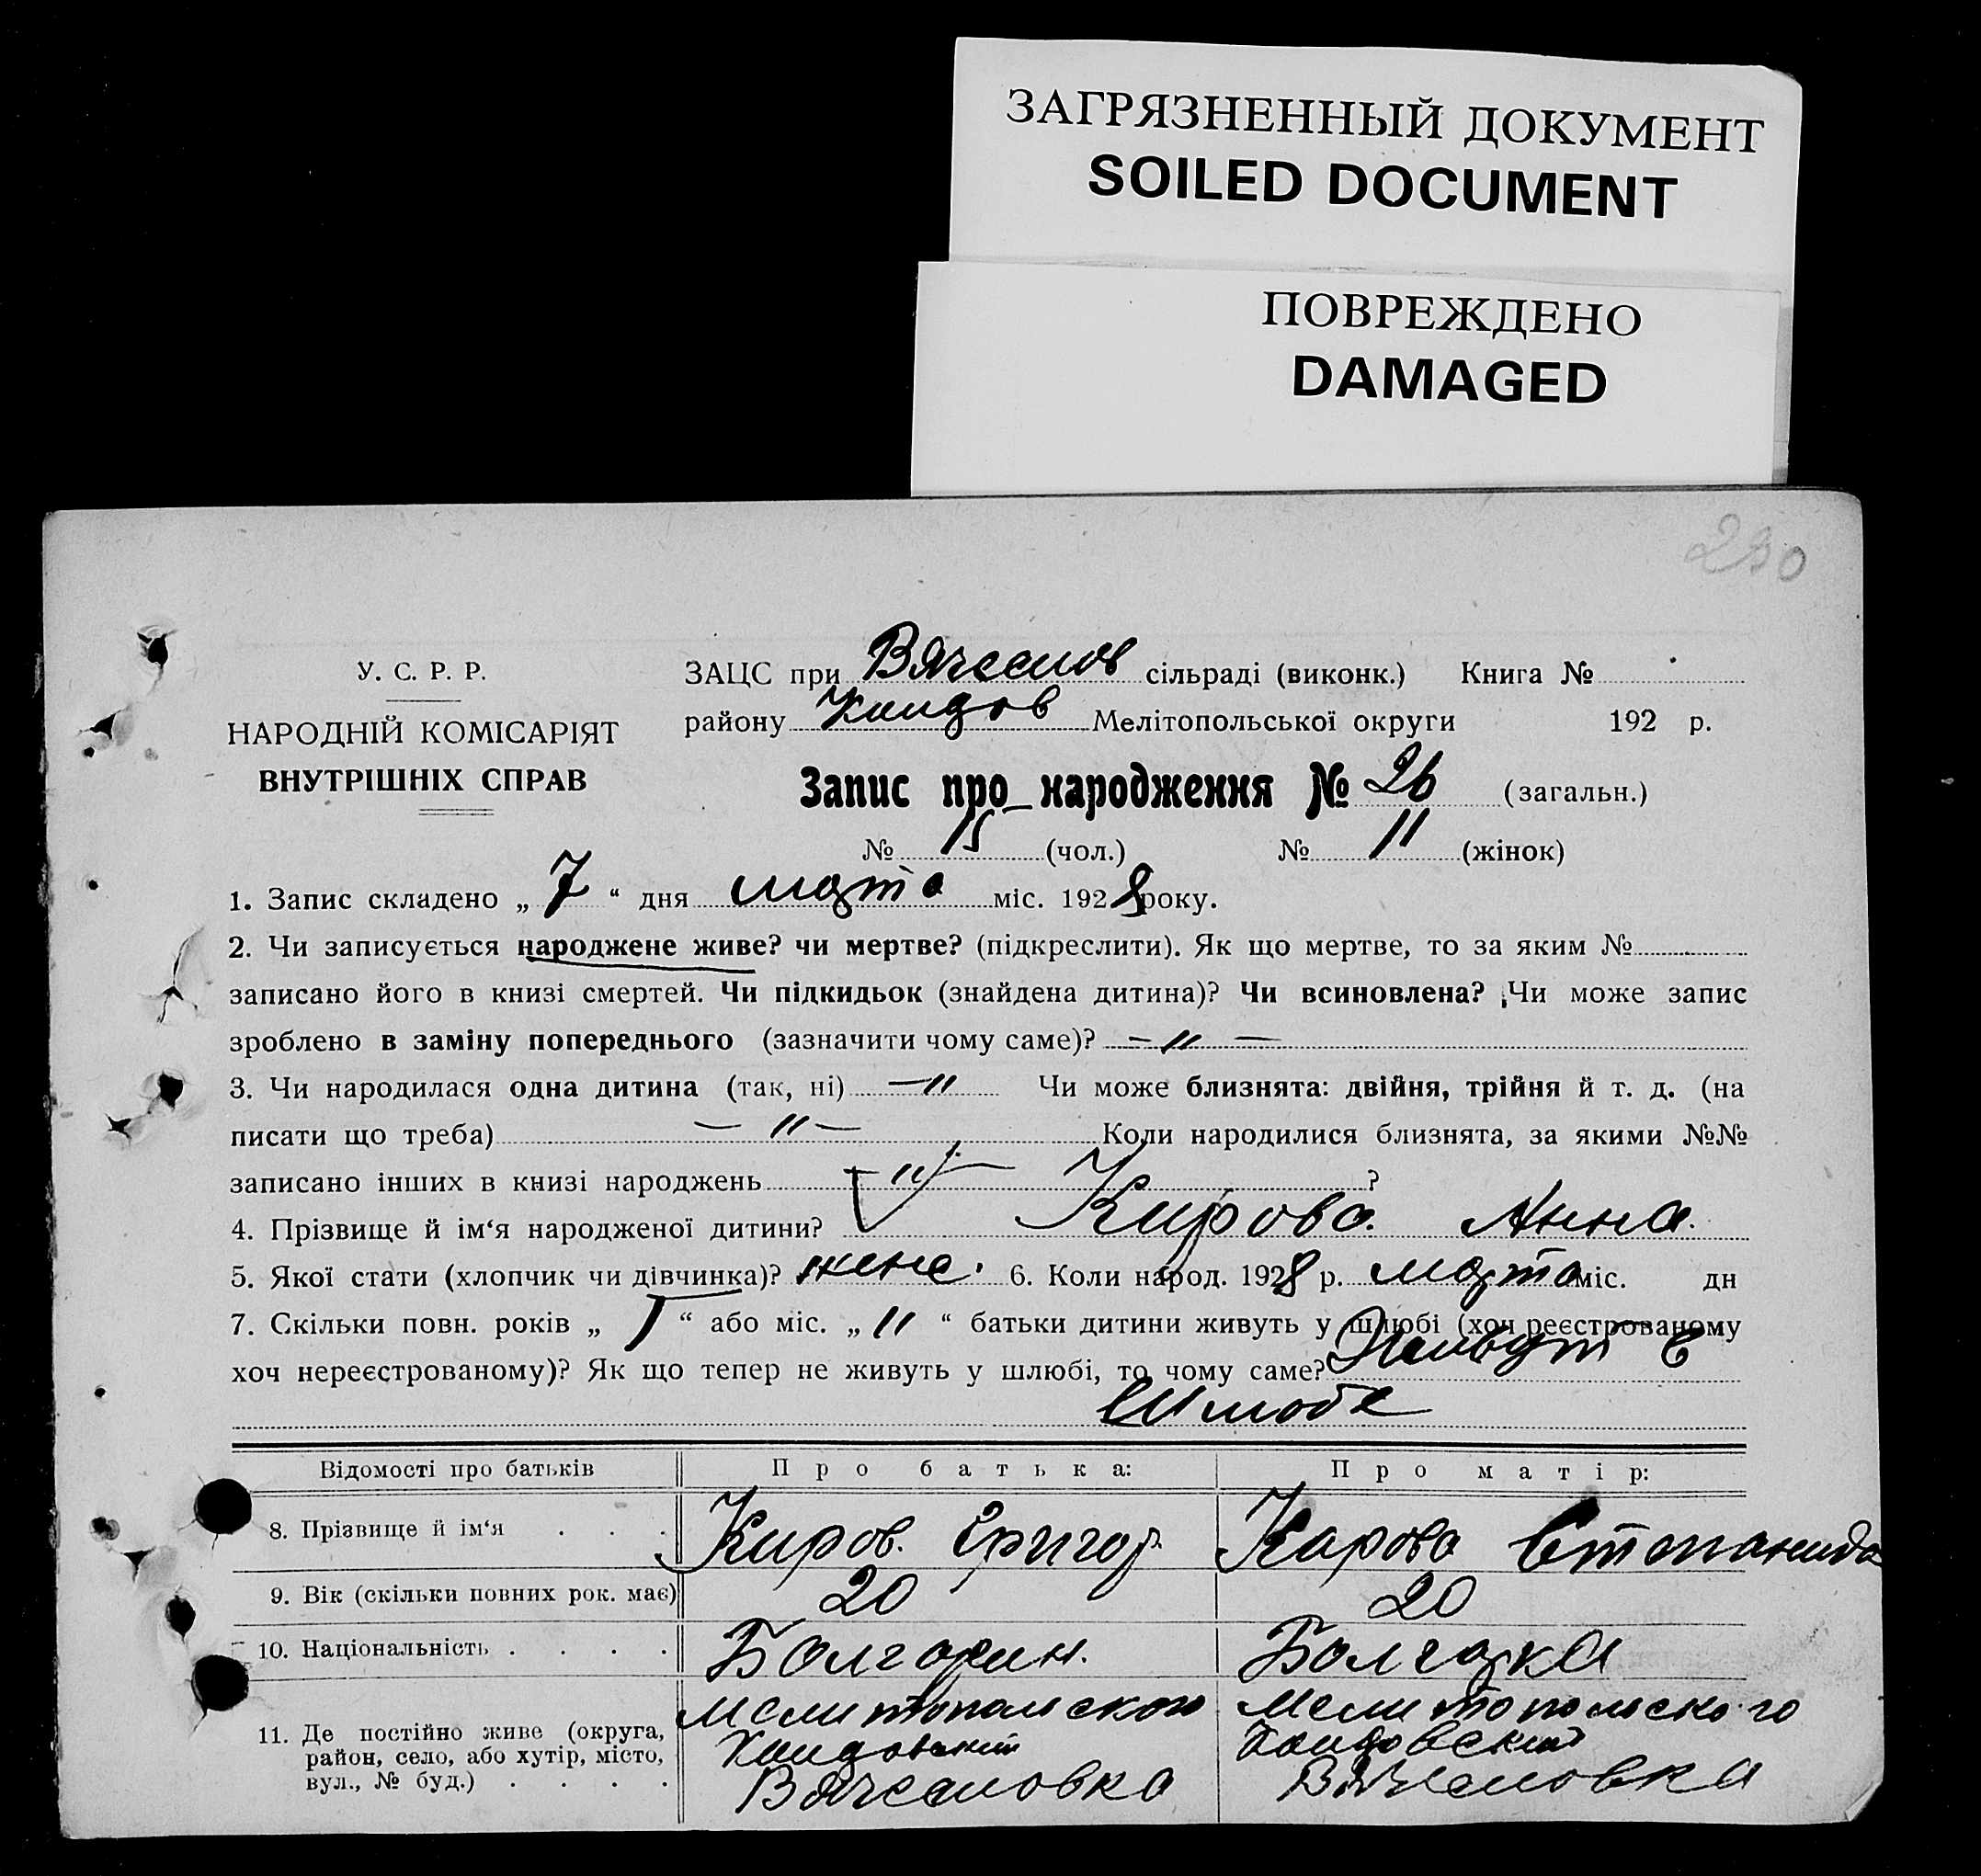 ЗАГРЯЗНЕННЫЙ ДОКУМЕНТ
SOILED DOCUMENT
ПОВРЕЖДЕНО
DAMAGED
230
У. С. Р. Р.
НАРОДНІЙ КОМІСАРІЯТ
ВНУТРІШНІХ СПРАВ
ЗАЦС при Вячеслов сільраді (виконк.) Книга №
району Коидов Мелітопольської округи 192 р.
Запис про народження № 26 (загальн.)
№ 15 (чол.) № 11 (жінок)
1. Запис складено „ 7 “ дня марта міс. 1928 року.
2. Чи записується народжене живе? чи мертве? (підкреслити). Як що мертве, то за яким №
записано його в книзі смертей. Чи підкидьок (знайдена дитина)? Чи всиновлена? Чи може запис
зроблено в заміну попереднього (зазначити чому саме)? — 〃 —
3. Чи народилася одна дитина (так, ні) — 〃 Чи може близнята: двійня, трійня й т. д. (на
писати що треба) — 〃 — Коли народилися близнята, за якими №№
записано інших в книзі народжень — 〃 — ?
4. Прізвище й ім‘я народженої дитини? Кирова Анна.
5. Якої стати (хлопчик чи дівчинка)? женс. 6. Коли народ. 1928 р. марта міс. дн
7. Скільки повн. років „ 1 “ або міс. „ 11 “ батьки дитини живуть у шлюбі (хоч реєстрованому
хоч нереєстрованому)? Як що тепер не живуть у шлюбі, то чому саме? в
Шлюбе
Відомості про батьків Про батька: Про матір:
8. Прізвище й ім‘я . . . Киров. Григор. Кирова Степанида
9. Вік (скільки повних рок. має) 20 20
10. Національність . . . . Болгарин. Болгарка
11. Де постійно живе (округа, Мелитопольского Мелитопольского
район, село, або хутір, місто, Коидовский Коидовский
вул., № буд.) . . . . Вячеславка Вячеславка